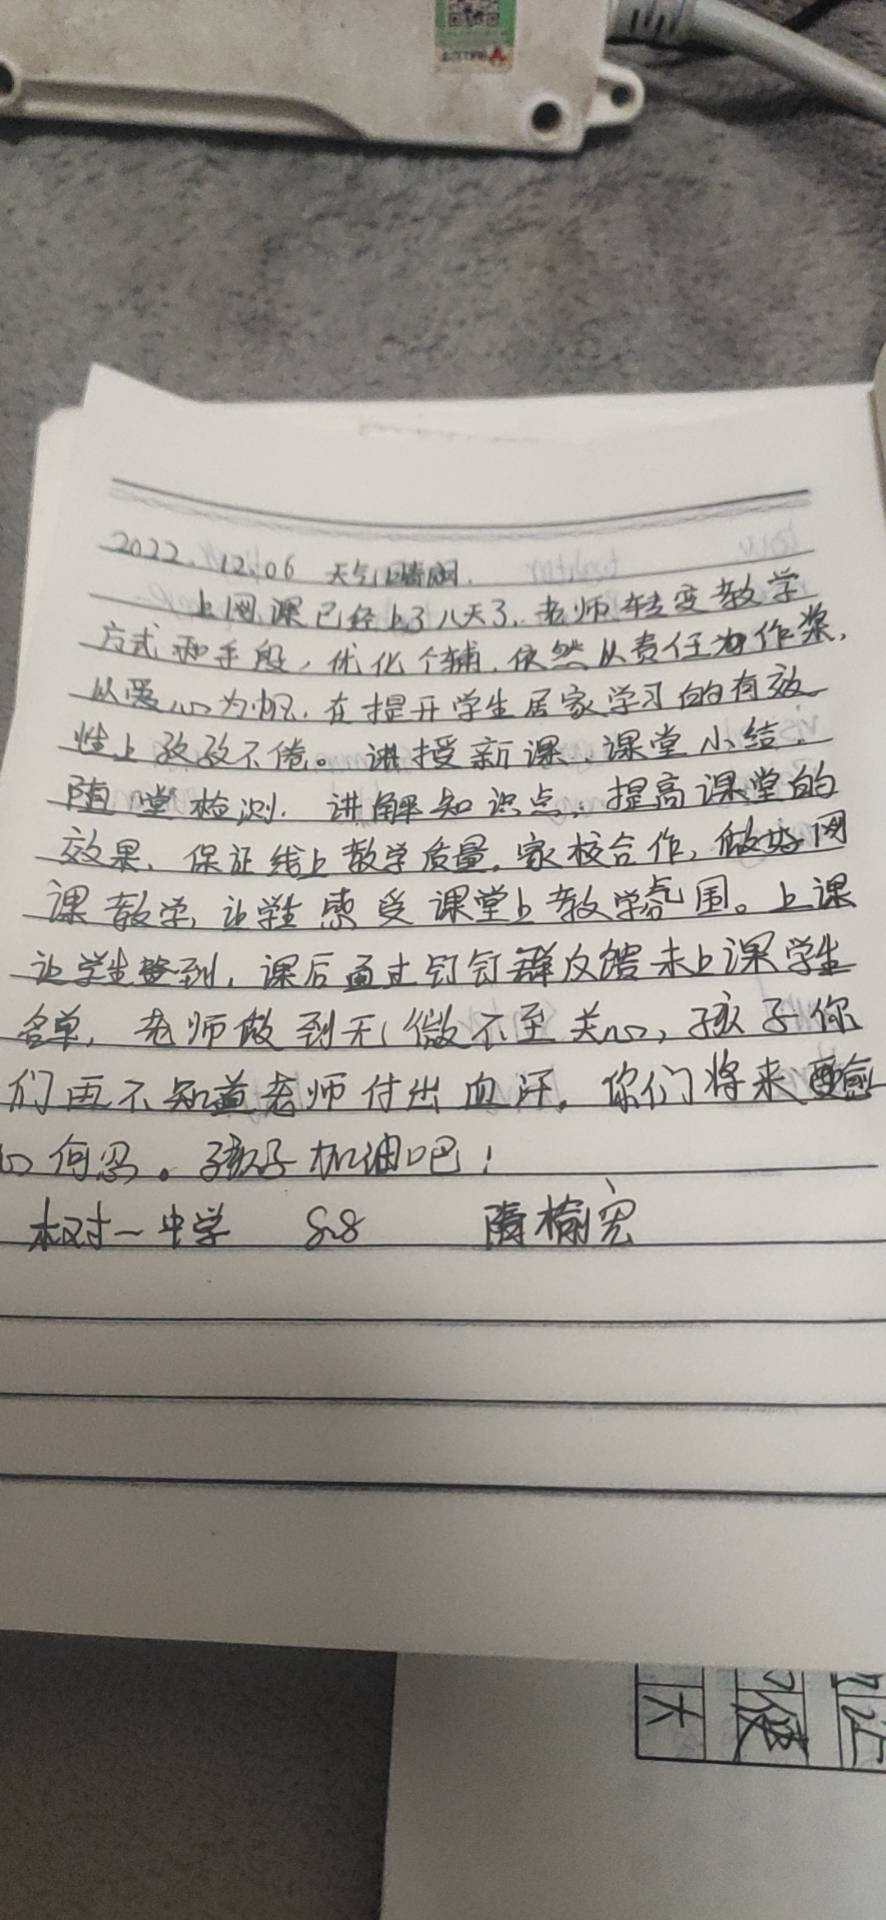 2022.12.06 天气晴朗.
上网课已经上了八天了,老师转变教学
方式和手段,优化个辅,依然以责任为作桨,
以爱心为帆,在提开学生居家学习的有效
性上孜孜不倦。讲授新课、课堂小结、
随堂检测、讲解知识点,提高课堂的
效果、保证线上教学质量,家校合作,做好网
课教学,让学生感受课堂上教学氛围。上课
让学生签到,课后通过钉钉群反馈未上课学生
名单,老师做到无微不至关心,孩子你
们再不知道老师付出血汗,你们将来
心何忍。孩子加油吧!
树一中学 8.8 隋榆宪